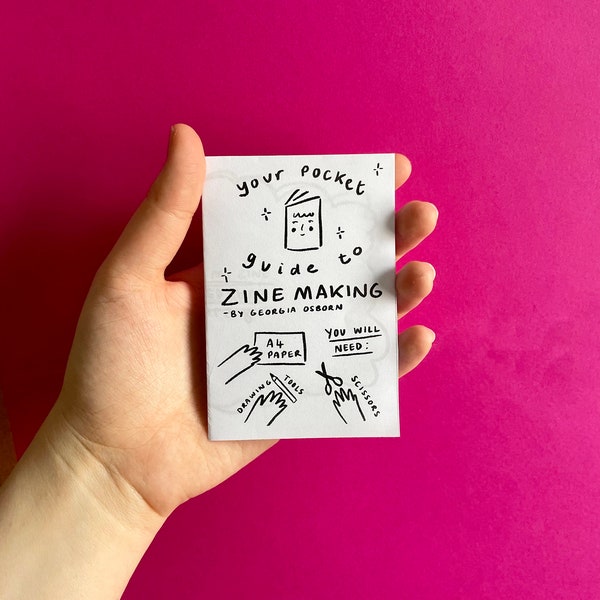 your pocket
guide to
ZINE MAKING
- BY GEORGIA OSBORN
YOU WILL
NEED:
A4
PAPER
DRAWING TOOLS
SCISSORS